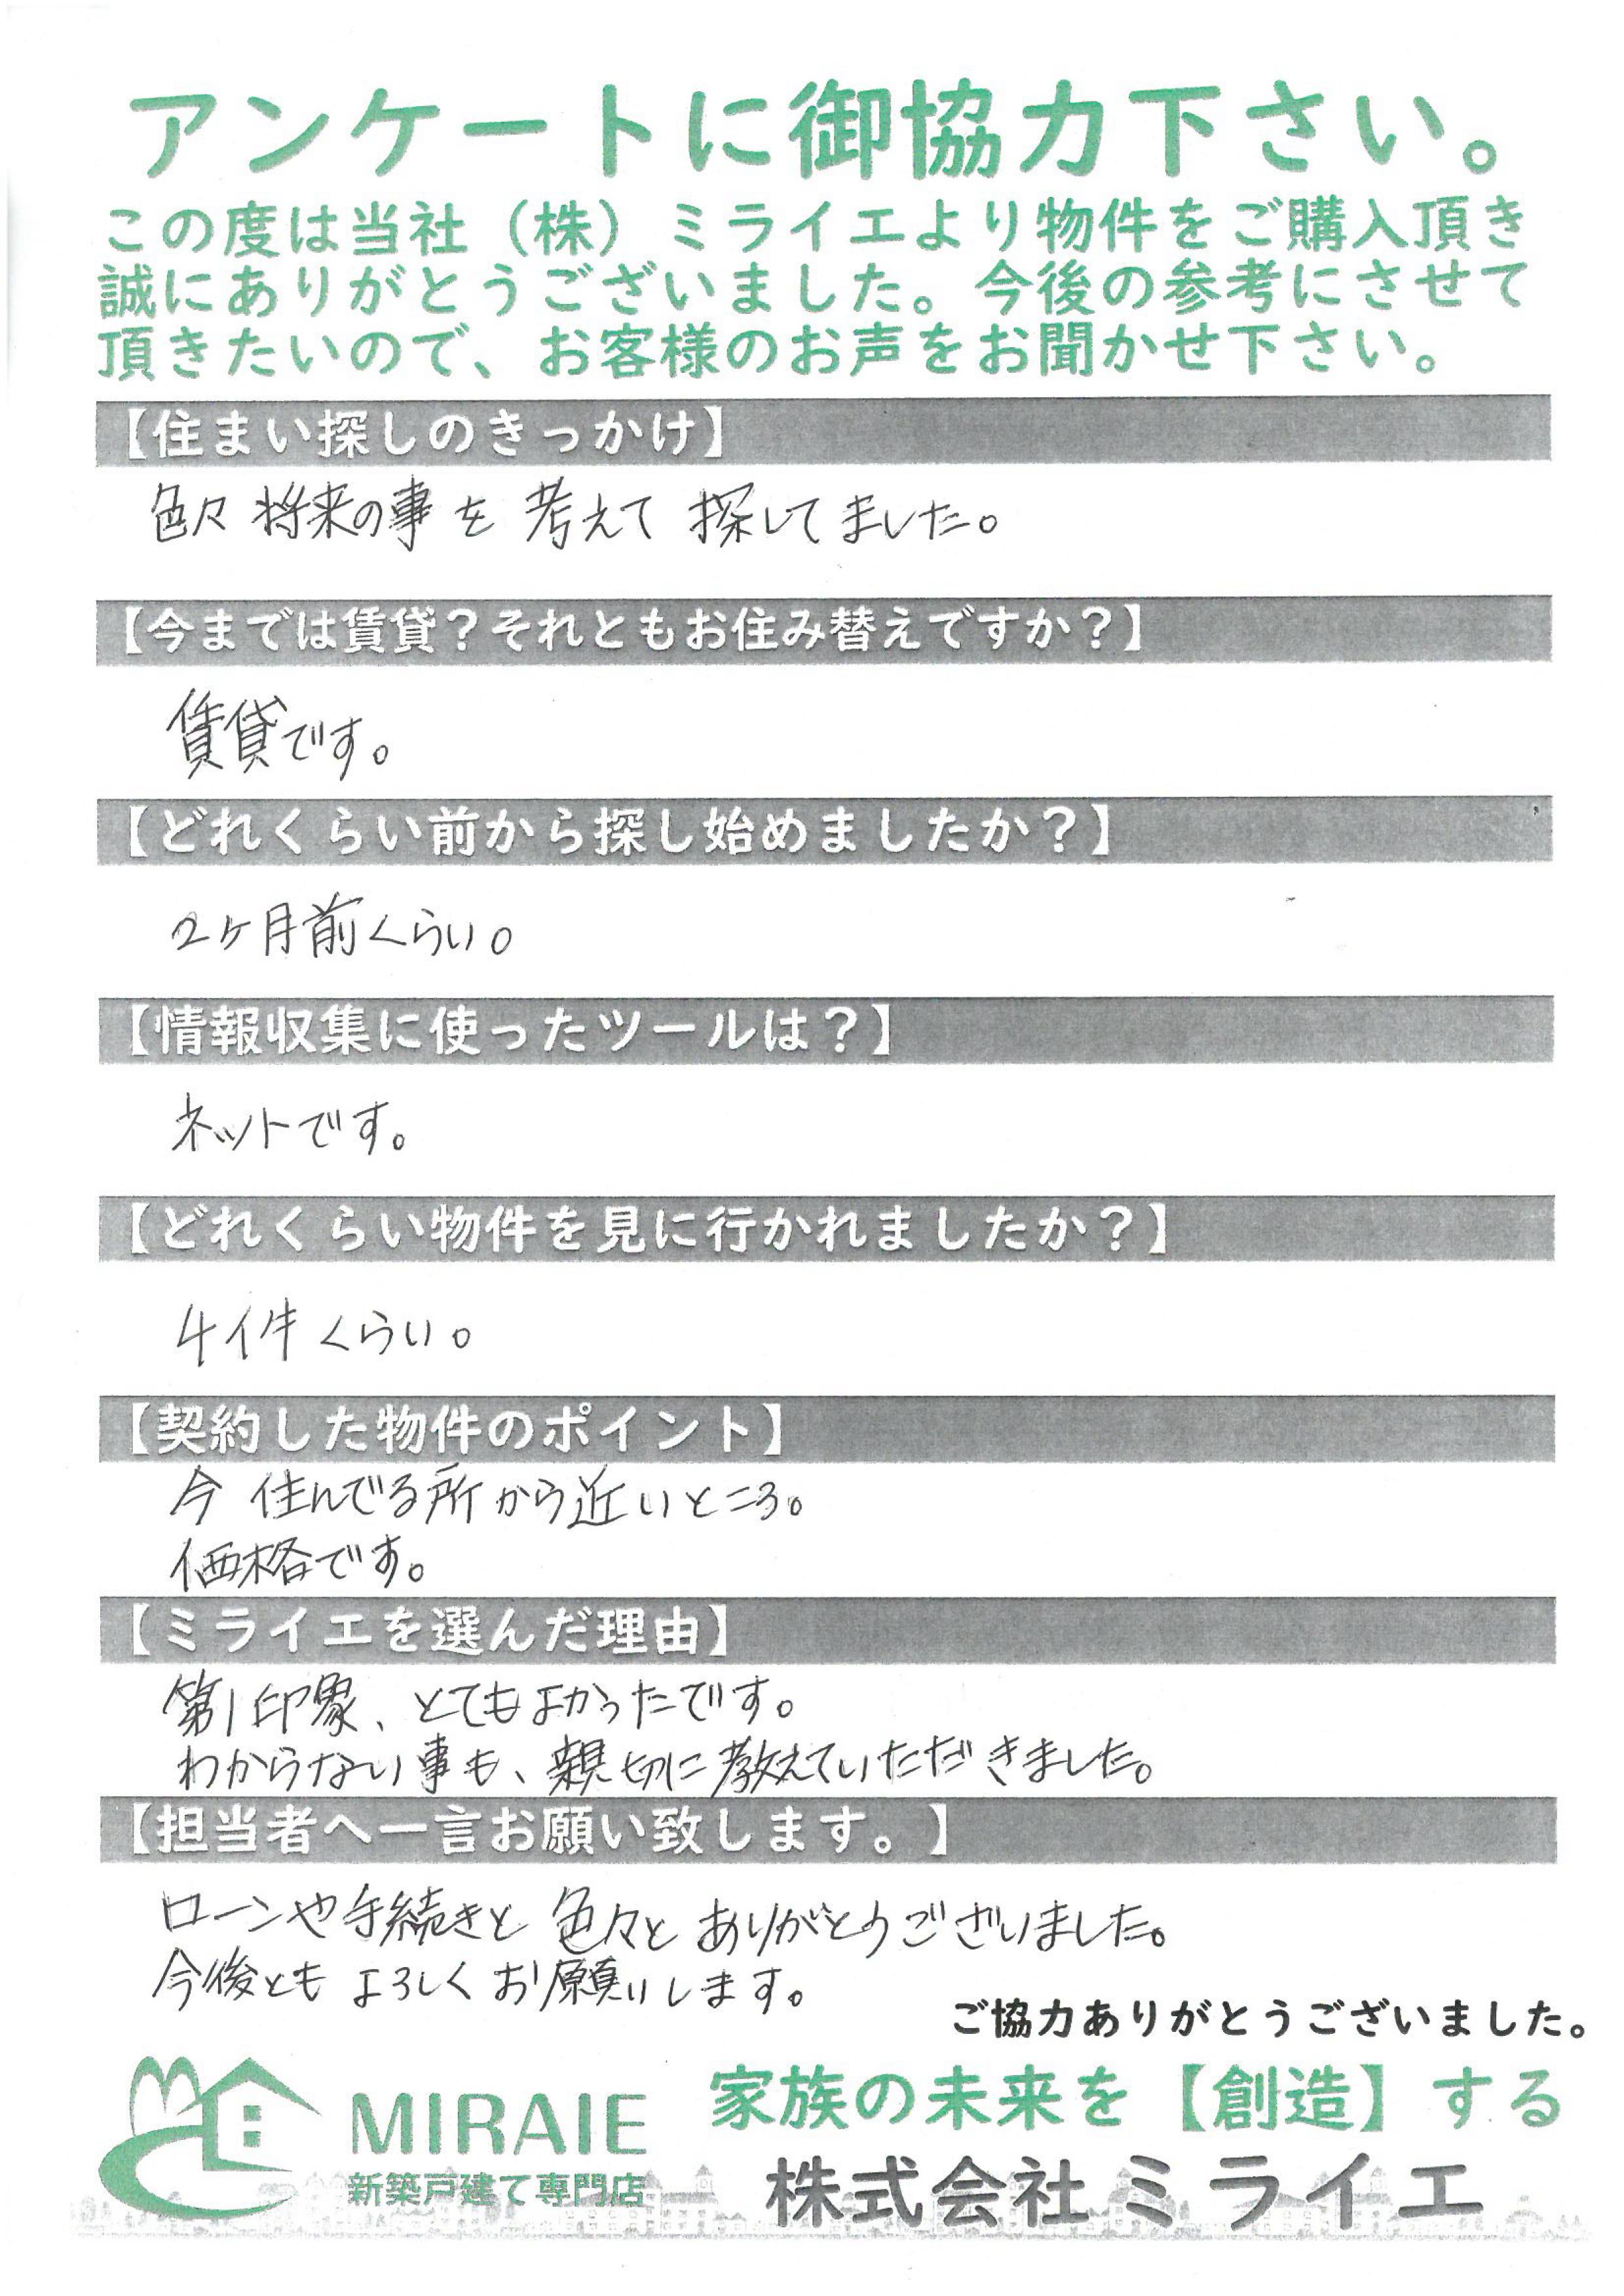 アンケートに御協力下さい。
この度は当社（株）ミライエより物件をご購入頂き
誠にありがとうございました。今後の参考にさせて
頂きたいので、お客様のお声をお聞かせ下さい。
【住まい探しのきっかけ】
色々将来の事を考えて探してました。
【今までは賃貸？それともお住み替えですか？】
賃貸です。
【どれくらい前から探し始めましたか？】
2ヶ月前くらい。
【情報収集に使ったツールは？】
ネットです。
【どれくらい物件を見に行かれましたか？】
4件くらい。
【契約した物件のポイント】
今住んでる所から近いところ。
価格です。
【ミライエを選んだ理由】
第1印象、とてもよかったです。
わからない事も、親切に教えていただきました。
【担当者へ一言お願い致します。】
ローンや手続きと色々とありがとうございました。
今後ともよろしくお願いします。
ご協力ありがとうございました。
MIRAIE
新築戸建て専門店
家族の未来を【創造】する
株式会社ミライエ